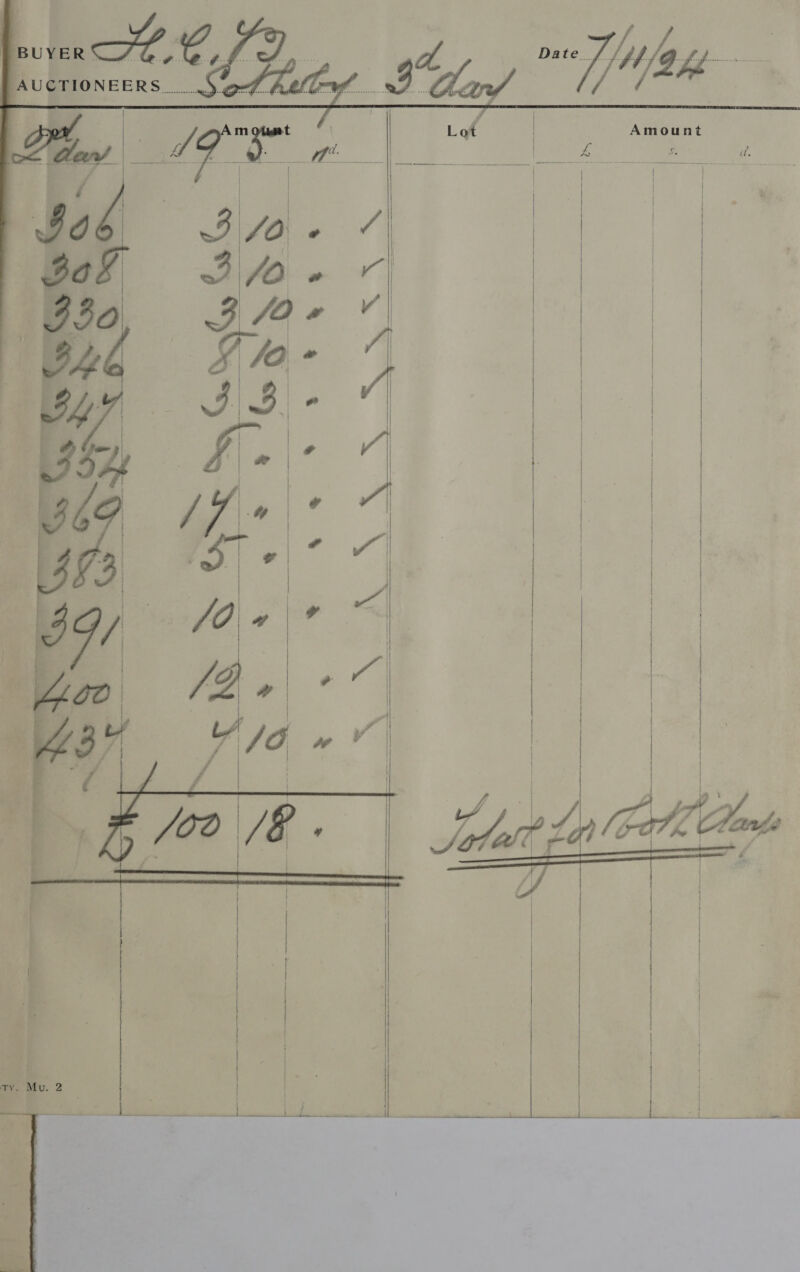 BUYER
Date 7/11/24
AUCTIONEERS Sotheby 3d day
Amount Lot Amount
2d day 19 5 " d. £ s. d.
306 3 10 " ✓
308 3 10 " ✓
330 3 10 " ✓
346 8 10 " ✓
347 3 3 " ✓
354 8 " " ✓
369 17 " " ✓
383 5 " " ✓
391 10 " " ✓
400 12 " " ✓
437 7 10 " ✓
£ 100 18 " Total for both days
TY. MU. 2